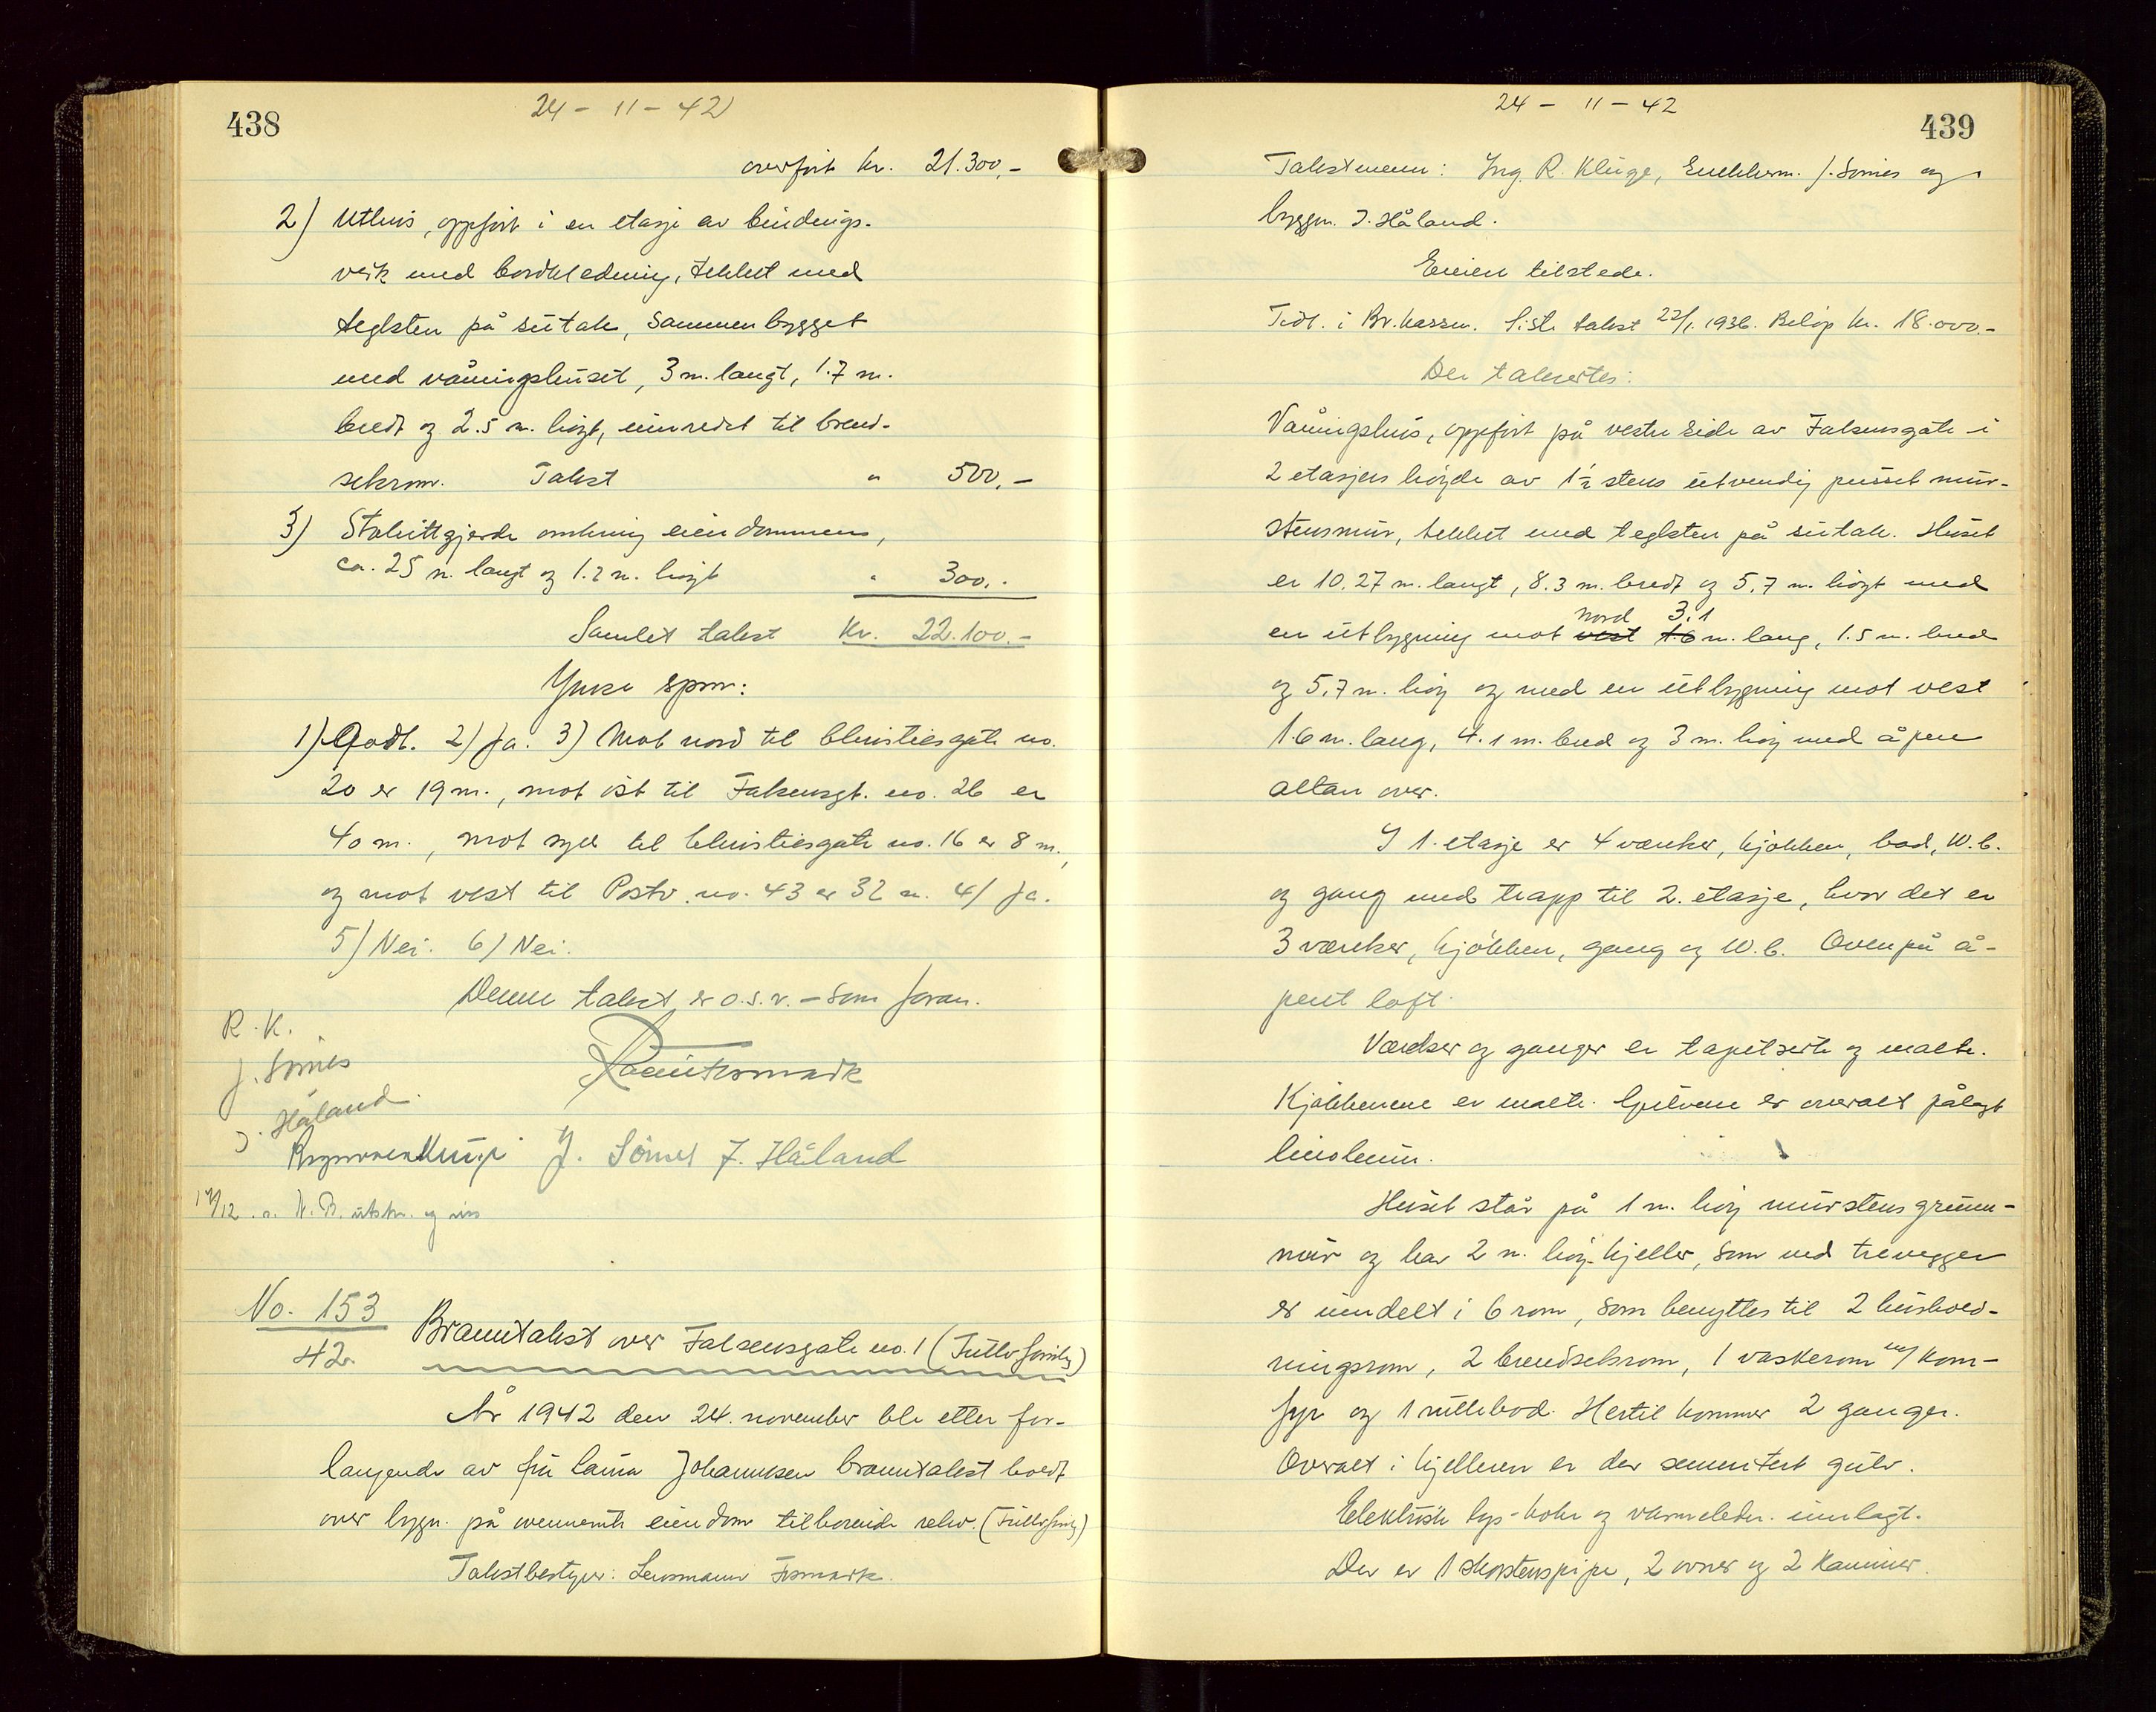 438
24 - 11 - 42
overfört kr. 21.300,-
2) Uthus, oppfört i en etasje av bindings-
verk med bordkledning, tekket med
teglsten på sutak, sammenbygget
med våningshuset, 3 m. langt, 1.7 m.
bredt og 2.5 m. högt, innredet til brend-
selsrom. Takst " 500.-
3) Stakittgjerde omkring eiendommen,
ca. 25 m. langt og 1.2 m. högt " 300.-
Samlet takst Kr. 22.100.-
Ymse spm:
1) Godt. 2) Ja. 3) Mot nord til Christiesgate no.
20 er 19 m., mot öst til Falsensgt. no. 26 er
40 m., mot syd til Christiesgate no. 16 er 8 m.,
og mot vest til Postv. no. 43 er 32 m. 4) Ja.
5) Nei. 6) Nei.
Denne takst er o.s.v. - som foran.
R. K.
J. Sömes
J. Håland.
J. Sömes J. Håland
17/12 N. B. utskr.
No. 153
42.
Branntakst over Falsensgate no. 1
År 1942 den 24. november ble etter for-
langende av fru Laura Johannesen branntakst holdt
over bygn. på ovennevnte eiendom tilhörende rekv.
Takstbestyrer: Lensmann Tismark.
439
24 - 11 - 42
Takstmenn: Ing. R. Kluge, J. Sömes og
byggm. J. Håland.
Eieren tilstede.
Tidl. i Br.kassen. Siste takst 22/1. 1936. Belöp kr. 18.000.-
Der takseertes:
Våningshus, oppfört på vestre side av Falsensgate i
2 etasjers höyde av 1½ stens utvendig pusset mur-
stensmur, tekket med teglsten på sutak. Huset
er 10.27 m. langt, 8.3 m. bredt og 5.7 m. högt med
nord 3.1
en utbygning mot vest 1.6 m. lang, 1.5 m. bred
og 5.7 m. höy og med en utbygning mot vest
1.6 m. lang, 4.1 m. bred og 3 m. höy med åpen
altan over.
I 1. etasje er 4 værelser, kjökken, bad, W.C.
og gang med trapp til 2. etasje, hvor det er
3 værelser, kjökken, gang og W.C. Ovenpå å-
pent loft.
Værelser og ganger er tapetserte og malte.
Kjökkenene er malte. Gulvene er overalt pålagt
linoleum.
Huset står på 1 m. höy murstens grunn-
mur og har 2 m. höy kjeller, som ved trevegger
er inndelt i 6 rom, som benyttes til 2 hushold-
ningsrom, 2 brendselsrom, 1 vaskerom m/ kom-
fyr og 1 rullebod. Hertil kommer 2 ganger.
Overalt i kjelleren er der sementert gulv.
Elektrisk lys- koke og varmeledn. innlagt.
Der er 1 skorstenspipe, 2 ovner og 2 kaminer.